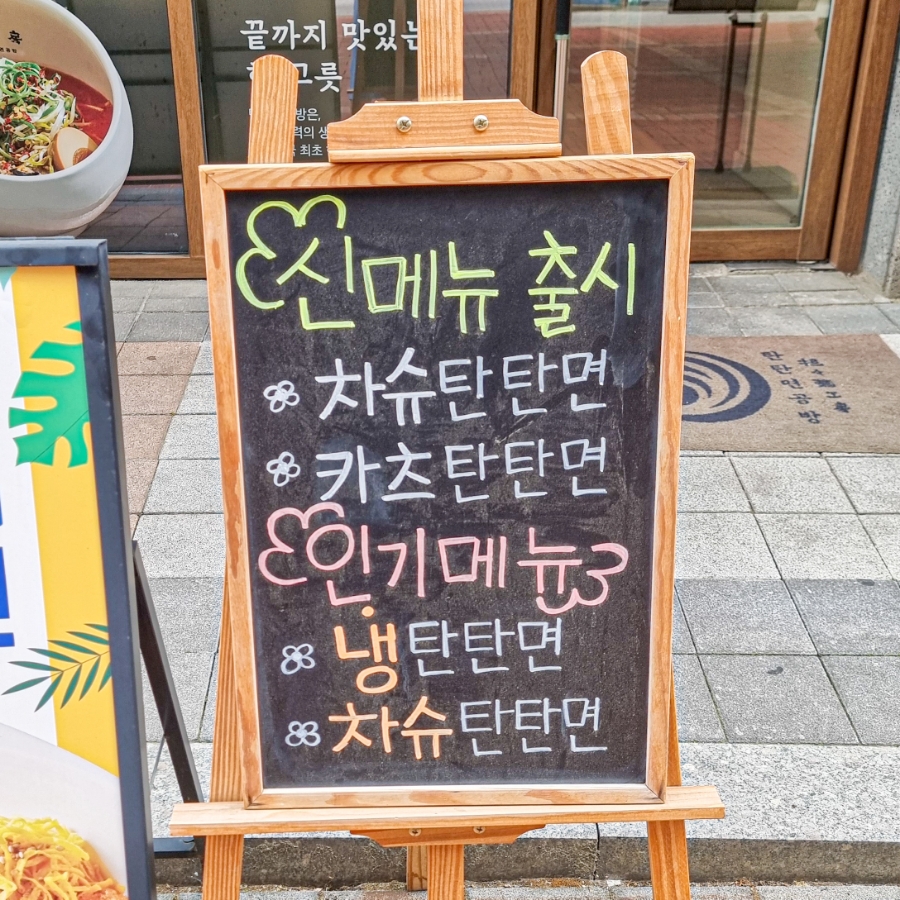 끝까지 맛있는
신메뉴 출시
차슈탄탄면
카츠탄탄면
인기메뉴
냉탄탄면
차슈탄탄면
탄탄면공방